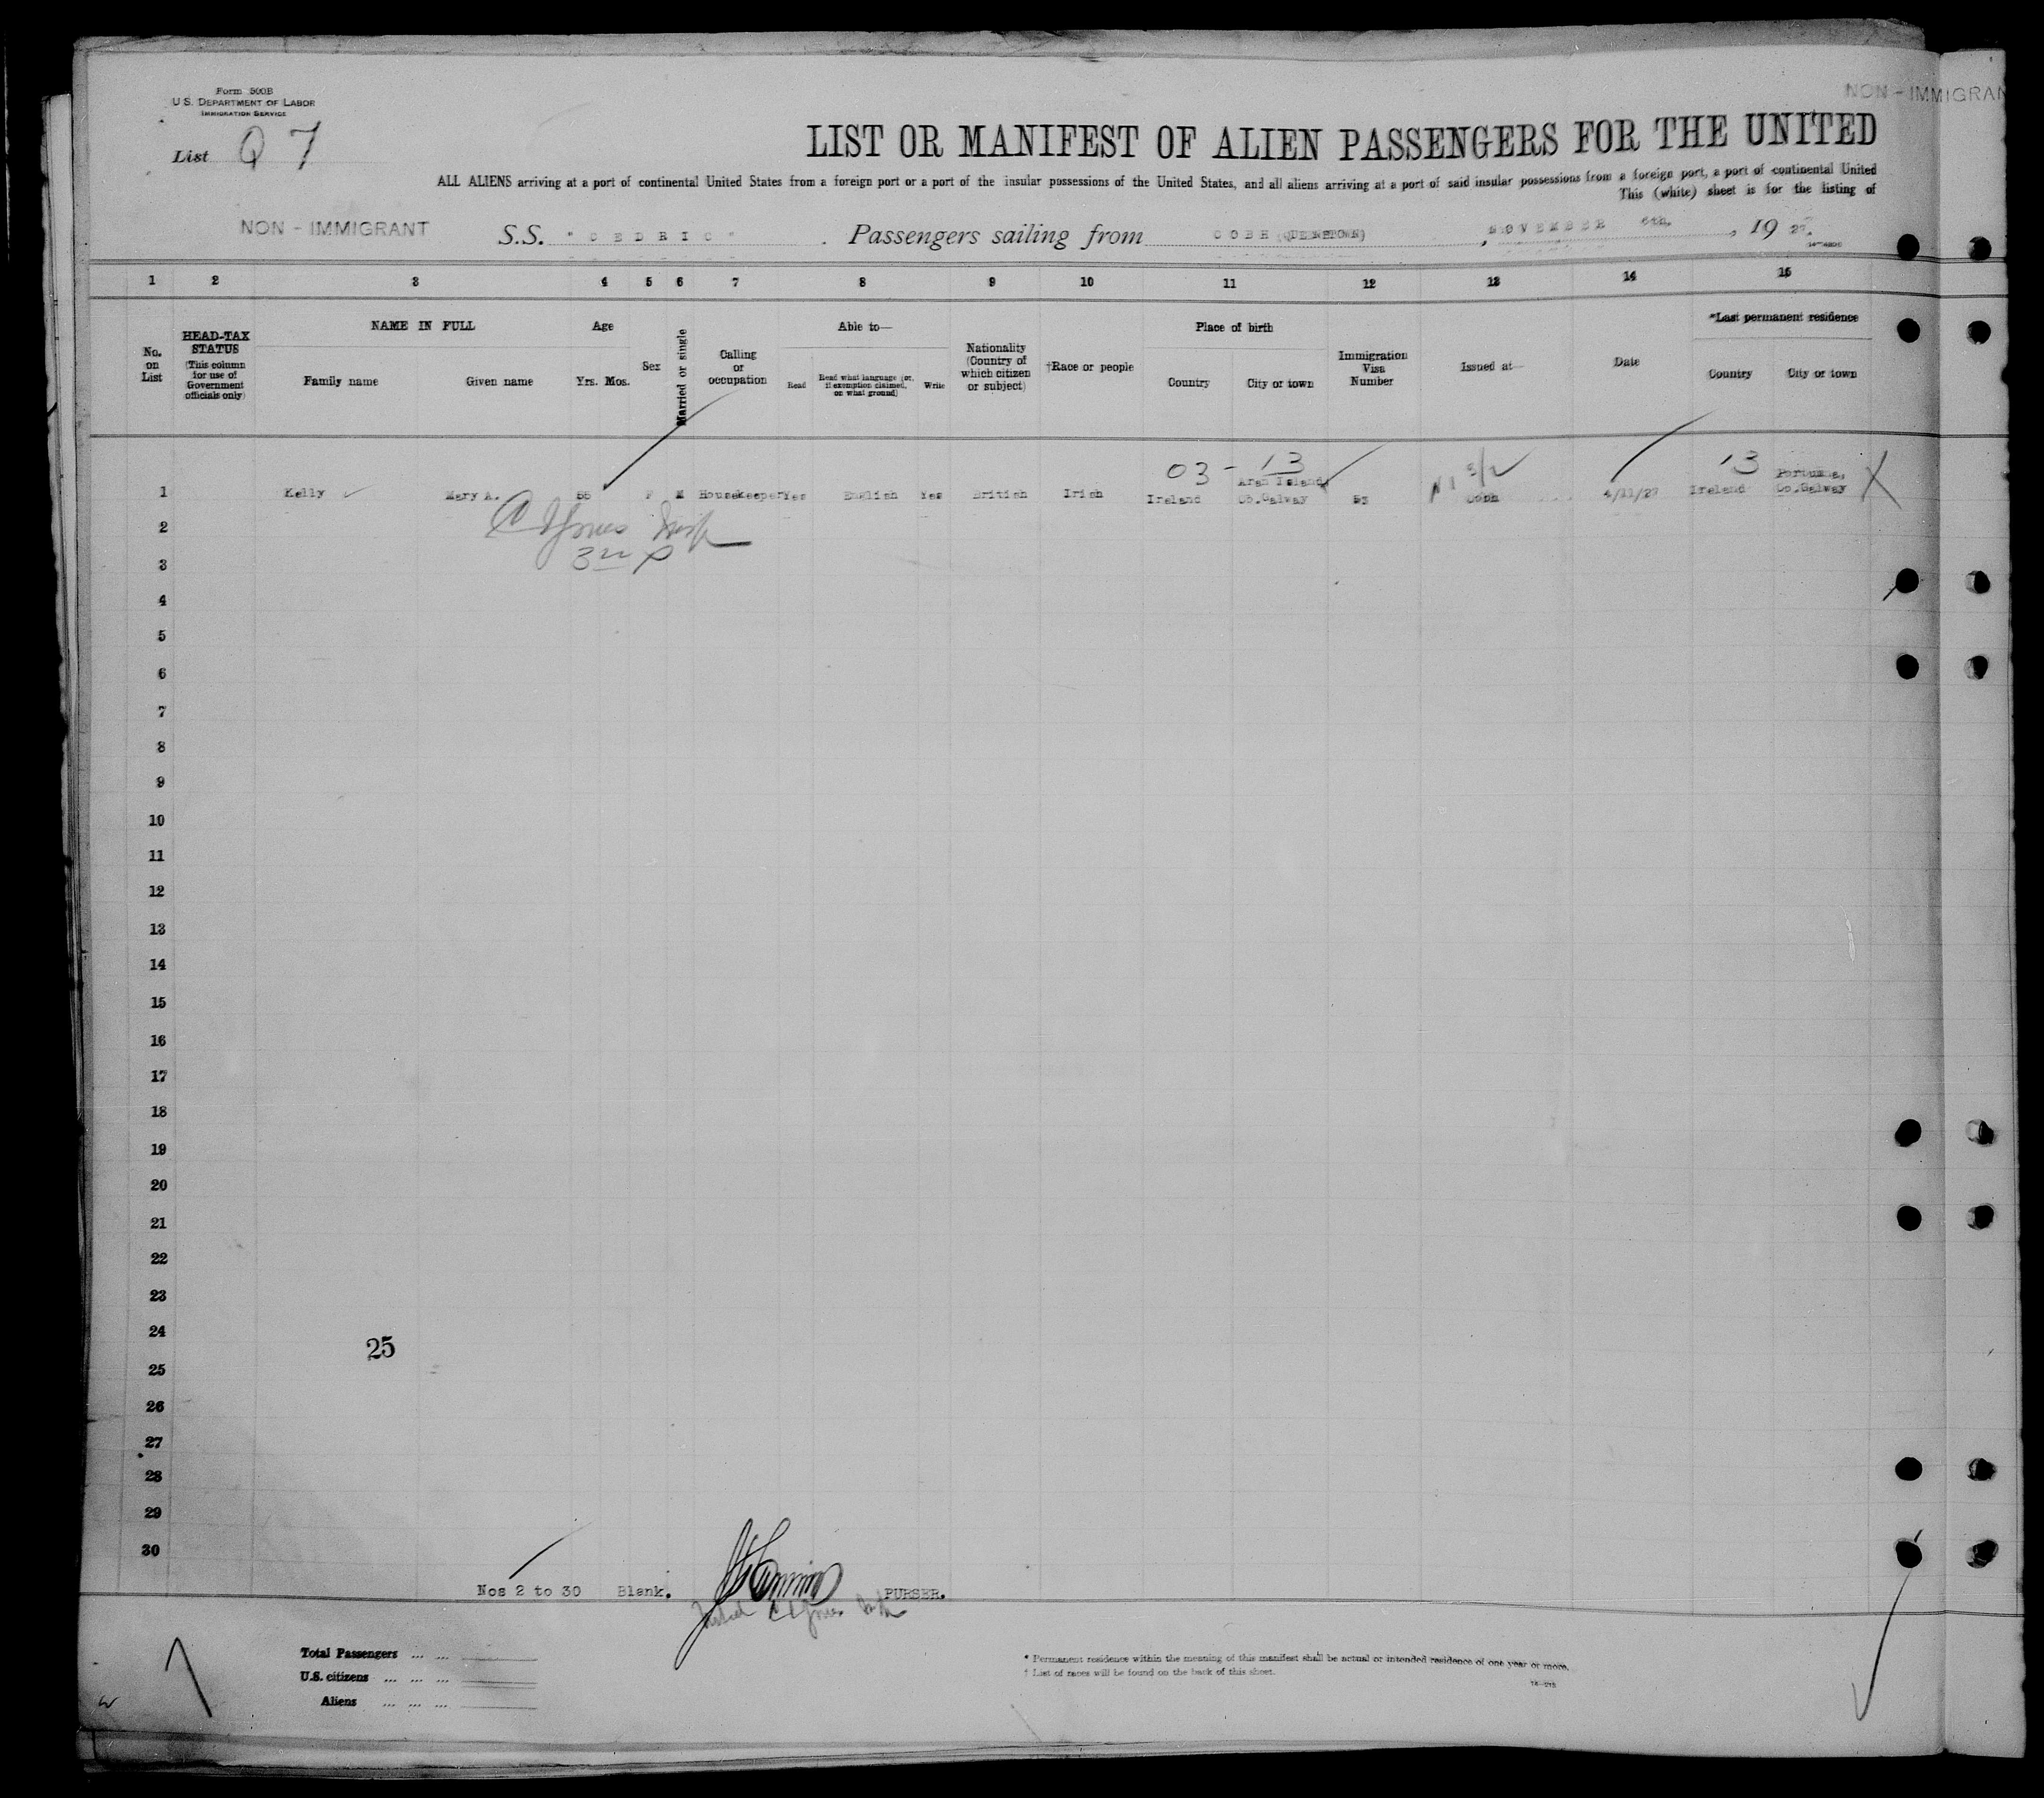 Form 500B
U.S. DEPARTMENT OF LABOR
IMMIGRATION SERVICE
NON - IMMIGRAN
List Q 7
LIST OR MANIFEST OF ALIEN PASSENGERS FOR THE UNITED
ALL ALIENS arriving at a port of continental United States from a foreign port or a port of the insular possessions of the United States, and all aliens arriving at a port of said insular possessions from a foreign port, a port of continental United
This (white) sheet is for the listing of
NON - IMMIGRANT
S.S. "CEDRIC". Passengers sailing from COBH (QUEENSTOWN), NOVEMBER 6th., 1927.
1 2 3 4 5 6 7 8 9 10 11 12 13 14 15
No. on List
HEAD-TAX STATUS
(This column for use of Government officials only)
NAME IN FULL
Family name
Given name
Age
Yrs. Mos.
Sex
Married or single
Calling or occupation
Able to—
Read
Read what language (or, if exemption claimed, on what ground)
Write
Nationality (Country of which citizen or subject)
†Race or people
Place of birth
Country
City or town
Immigration Visa Number
Issued at—
Date
*Last permanent residence
Country
City or town
03 - 13
13
1 Kelly Mary A. F M Housekeeper Yes English Yes British Irish Ireland Aran Islands Co.Galway 53 Cobh 4/11/27 Ireland Portumna, Co.Galway
2
3
4
5
6
7
8
9
10
11
12
13
14
15
16
17
18
19
20
21
22
23
24
25
25
26
27
28
29
30
Nos 2 to 30 Blank. PURSER.
Total Passengers
U.S. citizens
Aliens
* Permanent residence within the meaning of this manifest shall be actual or intended residence of one year or more.
† List of races will be found on the back of this sheet.